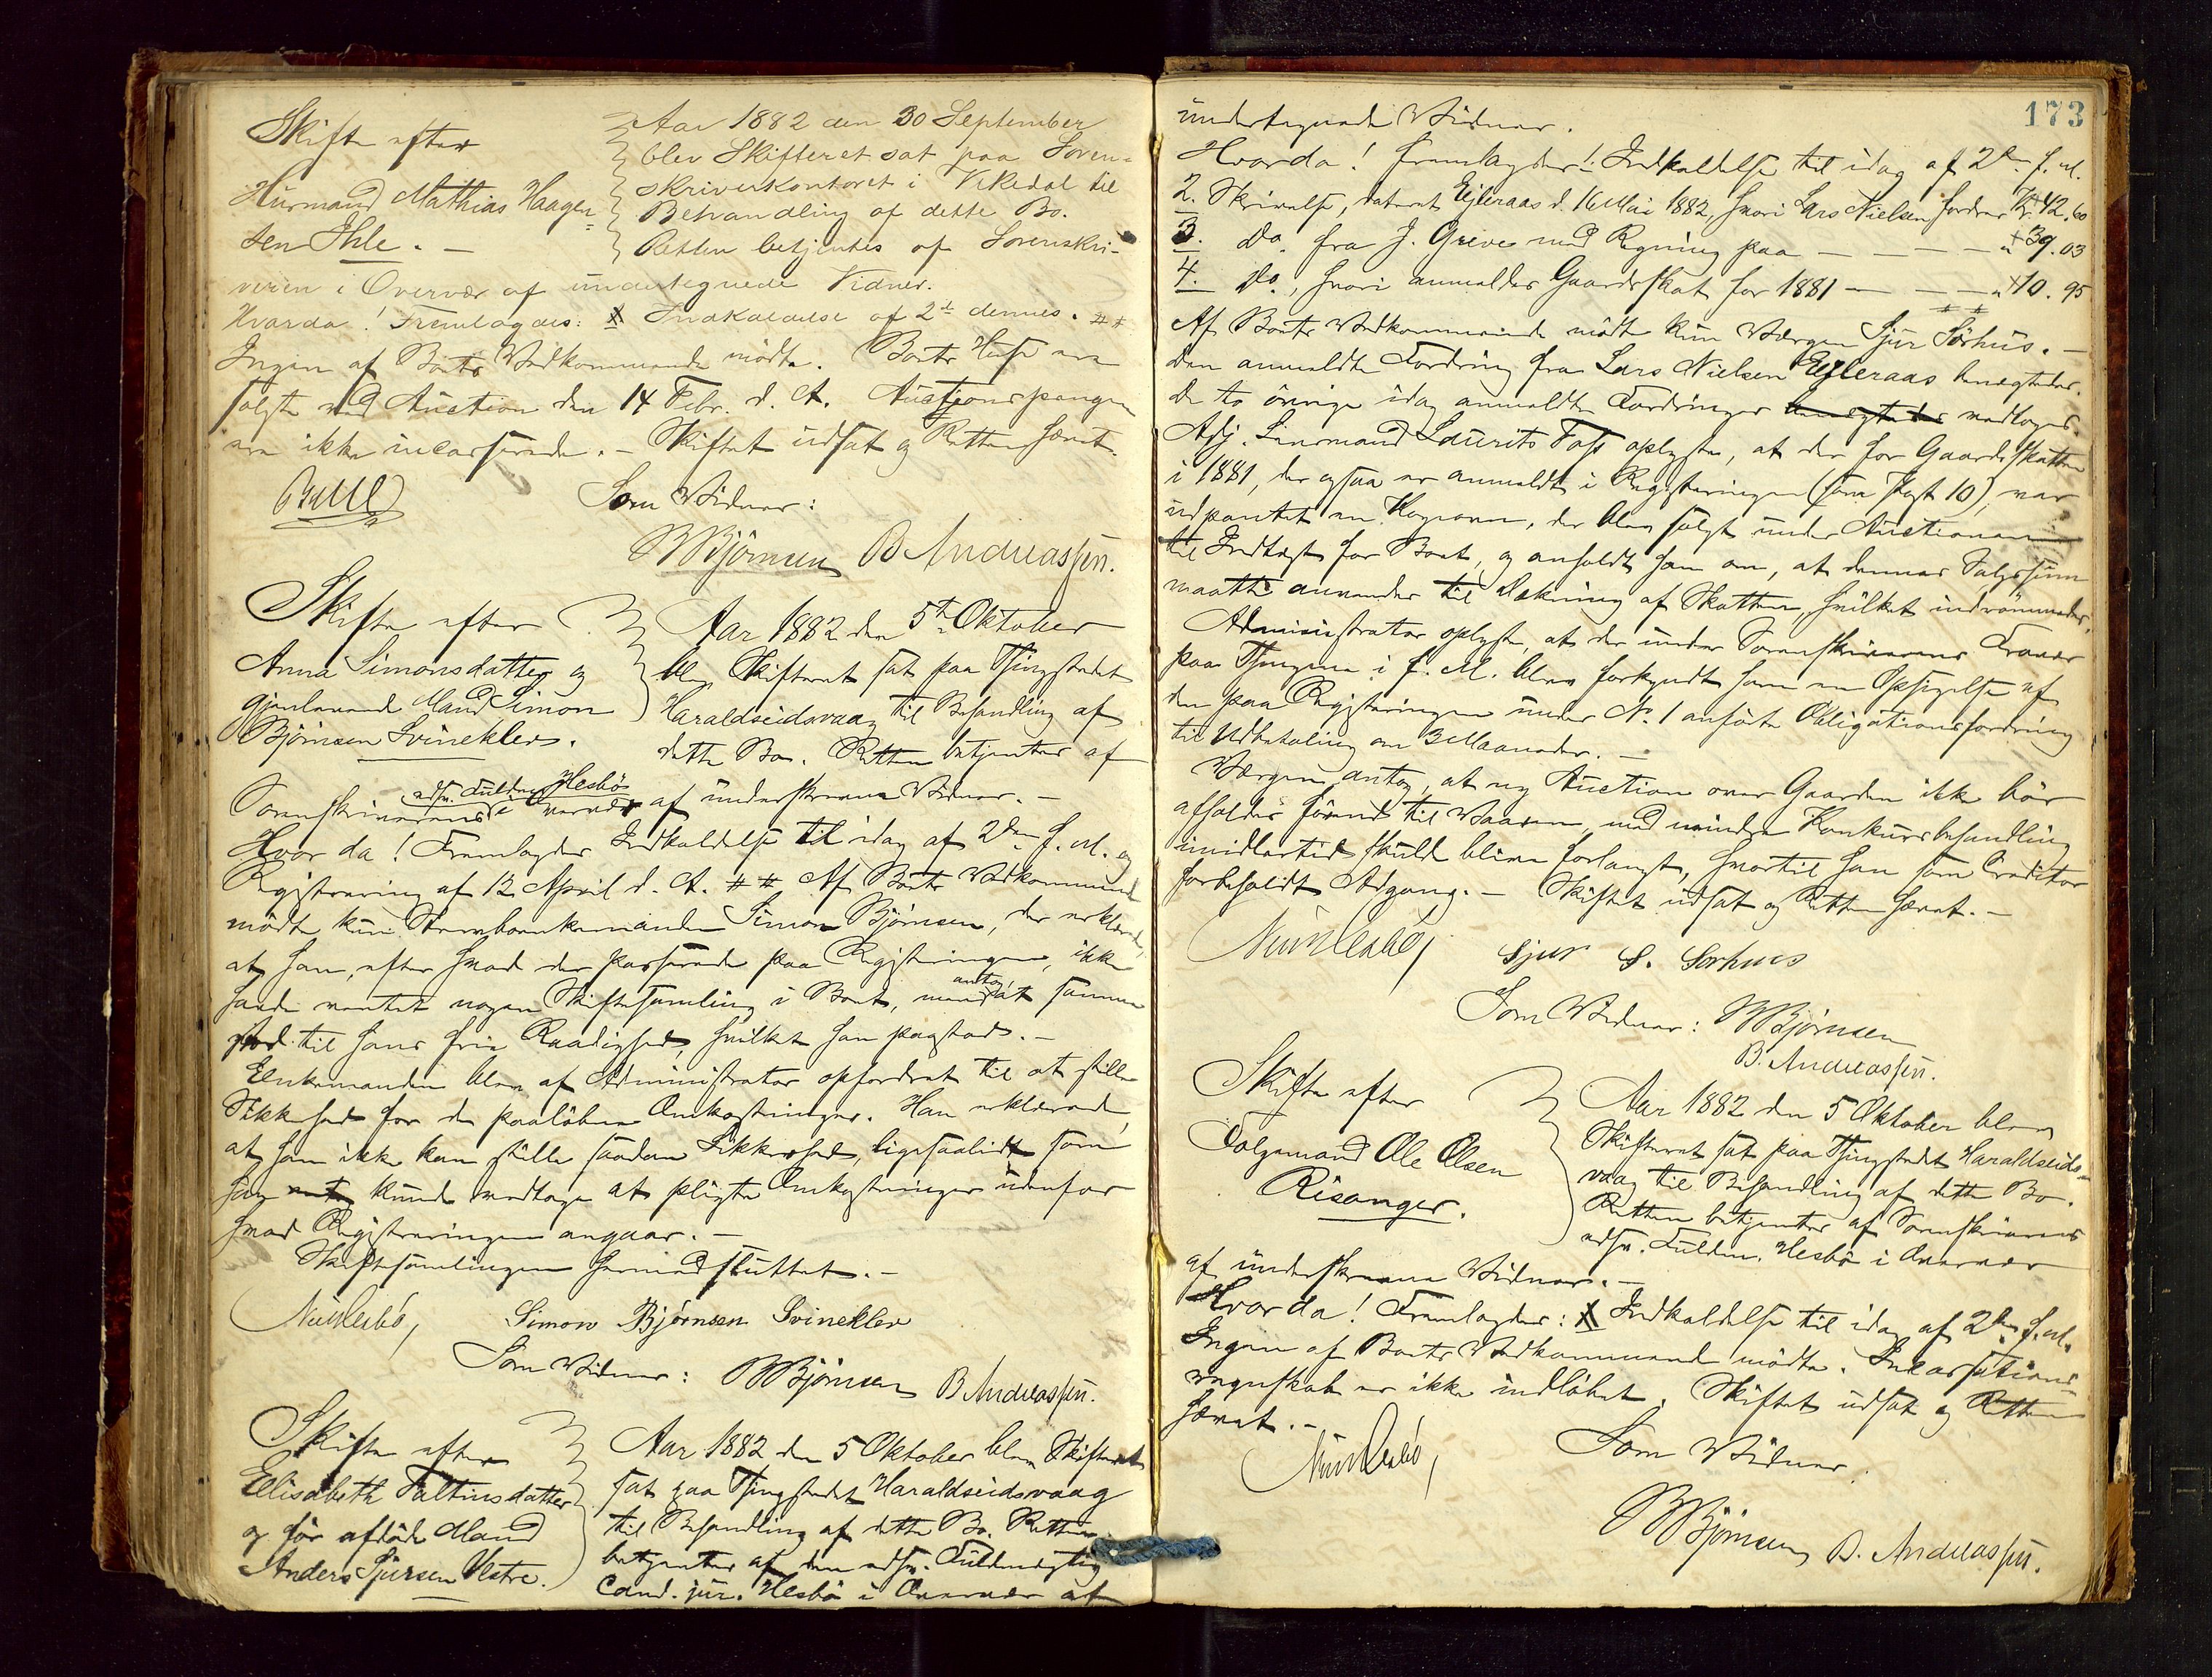 Skifte efter
Husmand Mathias Haagen=
sen Ihle. —
Aar 1882 den 30 September
blev Skifteret sat paa Soren=
skriverkontoret i Vikedal til
Behandling af dette Bo.
Retten betjentes af Sorenskri-
veren i Overvær af undertegnede Vidner.
Hvorda! Fremlagdes: 1 Indkaldelse af 2de dennes. ⌗⌗
Ingen af Boets Vedkommende mødte. Boets Huse ere
solgte ved Auction den 14 Febr. d. A. Auctionspengene
ere ikke incasserede. — Skiftet udsat og Retten hævet.
Som Vidner:
BBjörnsen B Andreassen.
Skifte efter
Anna Simonsdatter og
gjenlevende Mand Simon
Björnsen Svineklev.
Aar 1882 den 5te Oktober
blev Skifteret sat paa Thingstedet
Haraldseidsvaag til Behandling af
dette Bo. Retten betjentes af
Sorenskriverens edsv. Fuldm. Hesbö i Overvær af underskrevne Vidner. —
Hvor da! Fremlagdes Indkaldelse til idag af 2den f. M. og
Registrering af 12 April d. A. ⌗⌗ Af Boets Vedkommende
mødte kun Stervboenkemanden Simon Björnsen, der erklærede,
at han, efter hvad der passerede paa Registreringen, ikke
havde ventet nogen Skiftesamling i Boet, men antog, at samme
stod til hans frie Raadighed, hvilket han paastod. —
Enkemanden blev af Administrator opfordret til at stille
Sikkerhed for de paaløbne Omkostninger. Han erklærede,
at han ikke kan stille saadan Sikkerhed, ligesaalidt som
han kunde vedtage at pligte Omkostninger udenfor
hvad Registreringen angaar. —
Skiftesamlingen hermed sluttet. —
Simon Bjørnsen Svineklev
Som Vidner: BBjörnsen B Andreassen.
Skifte efter
Elisabeth Faltinsdatter
og før afdøde Mand
Anders Sjursen Vestre.
Aar 1882 den 5 Oktober blev Skifteret
sat paa Thingstedet Haraldseidsvaag
til Behandling af dette Bo. Retten
betjentes af den edsv. Fuldmægtig
Cand. jur. Hesbö i Overvær af
173
undertegnede Vidner.
Hvorda! Fremlagdes: 1. Indkaldelse til idag af 2den f. M.
2. Skrivelse, dateret Ejleraas d. 16 Mai 1882, hvori Lars Nielsen fordrer Kr. 42.60
3. do. fra J. Greve med Regning paa — — — — " 39.03
4. do., hvori anmeldes Gaardskat for 1881 — — — " 10.95
⌗⌗
Af Boets Vedkommende mødte kun Værgen Sjur Sörhus. —
Den anmeldte Fordring fra Lars Nielsen Ejleraas benegtedes.
De to øvrige idag anmeldte Fordringer benegtedes vedtoges.
Adj. Lensmand Laurits Foss oplyste, at der for Gaardsskatten
i 1881, der ogsaa er anmeldt i Registreringen (som Post 10), var
udpantet en Kogeovn, der blev solgt under Auctionen
til Indtægt for Boet, og anholdt han om, at dennes Salgssum
maatte anvendes til Dækning af Skatten, hvilket indrømmedes.
Administrator oplyste, at der under Sorenskriverens Fravær
paa Thingene i f. M. blev forkyndt ham en Opsigelse af
den paa Registreringen under No. 1 anførte Obligationsfordring
til Udbetaling om 3 Maaneder. —
Værgen antog, at ny Auction over Gaarden ikke bør
afholdes førend til Vaaren, med mindre Konkursbehandling
imidlertid skulde blive forlangt, hvortil han som Creditor
forbeholdt Adgang. — Skiftet udsat og Retten hævet. —
Sjur S. Sørhus
Som Vidner: BBjörnsen
B. Andreassen.
Skifte efter
Folgemand Ole Olsen
Risanger.
Aar 1882 den 5 Oktober blev
Skifteret sat paa Thingstedet Haraldseids=
vaag til Behandling af dette Bo.
Retten betjentes af Sorenskriverens
edsv. Fuldm. Hesbö i Overvær
af underskrevne Vidner. —
Hvor da! Fremlagdes: 1 Indkaldelse til idag af 2den f. M.
Ingen af Boets Vedkommende mødte. Incassations=
regnskab er ikke indløbet. Skiftet udsat og Retten
hævet. —
Som Vidner
BBjörnsen B. Andreassen.